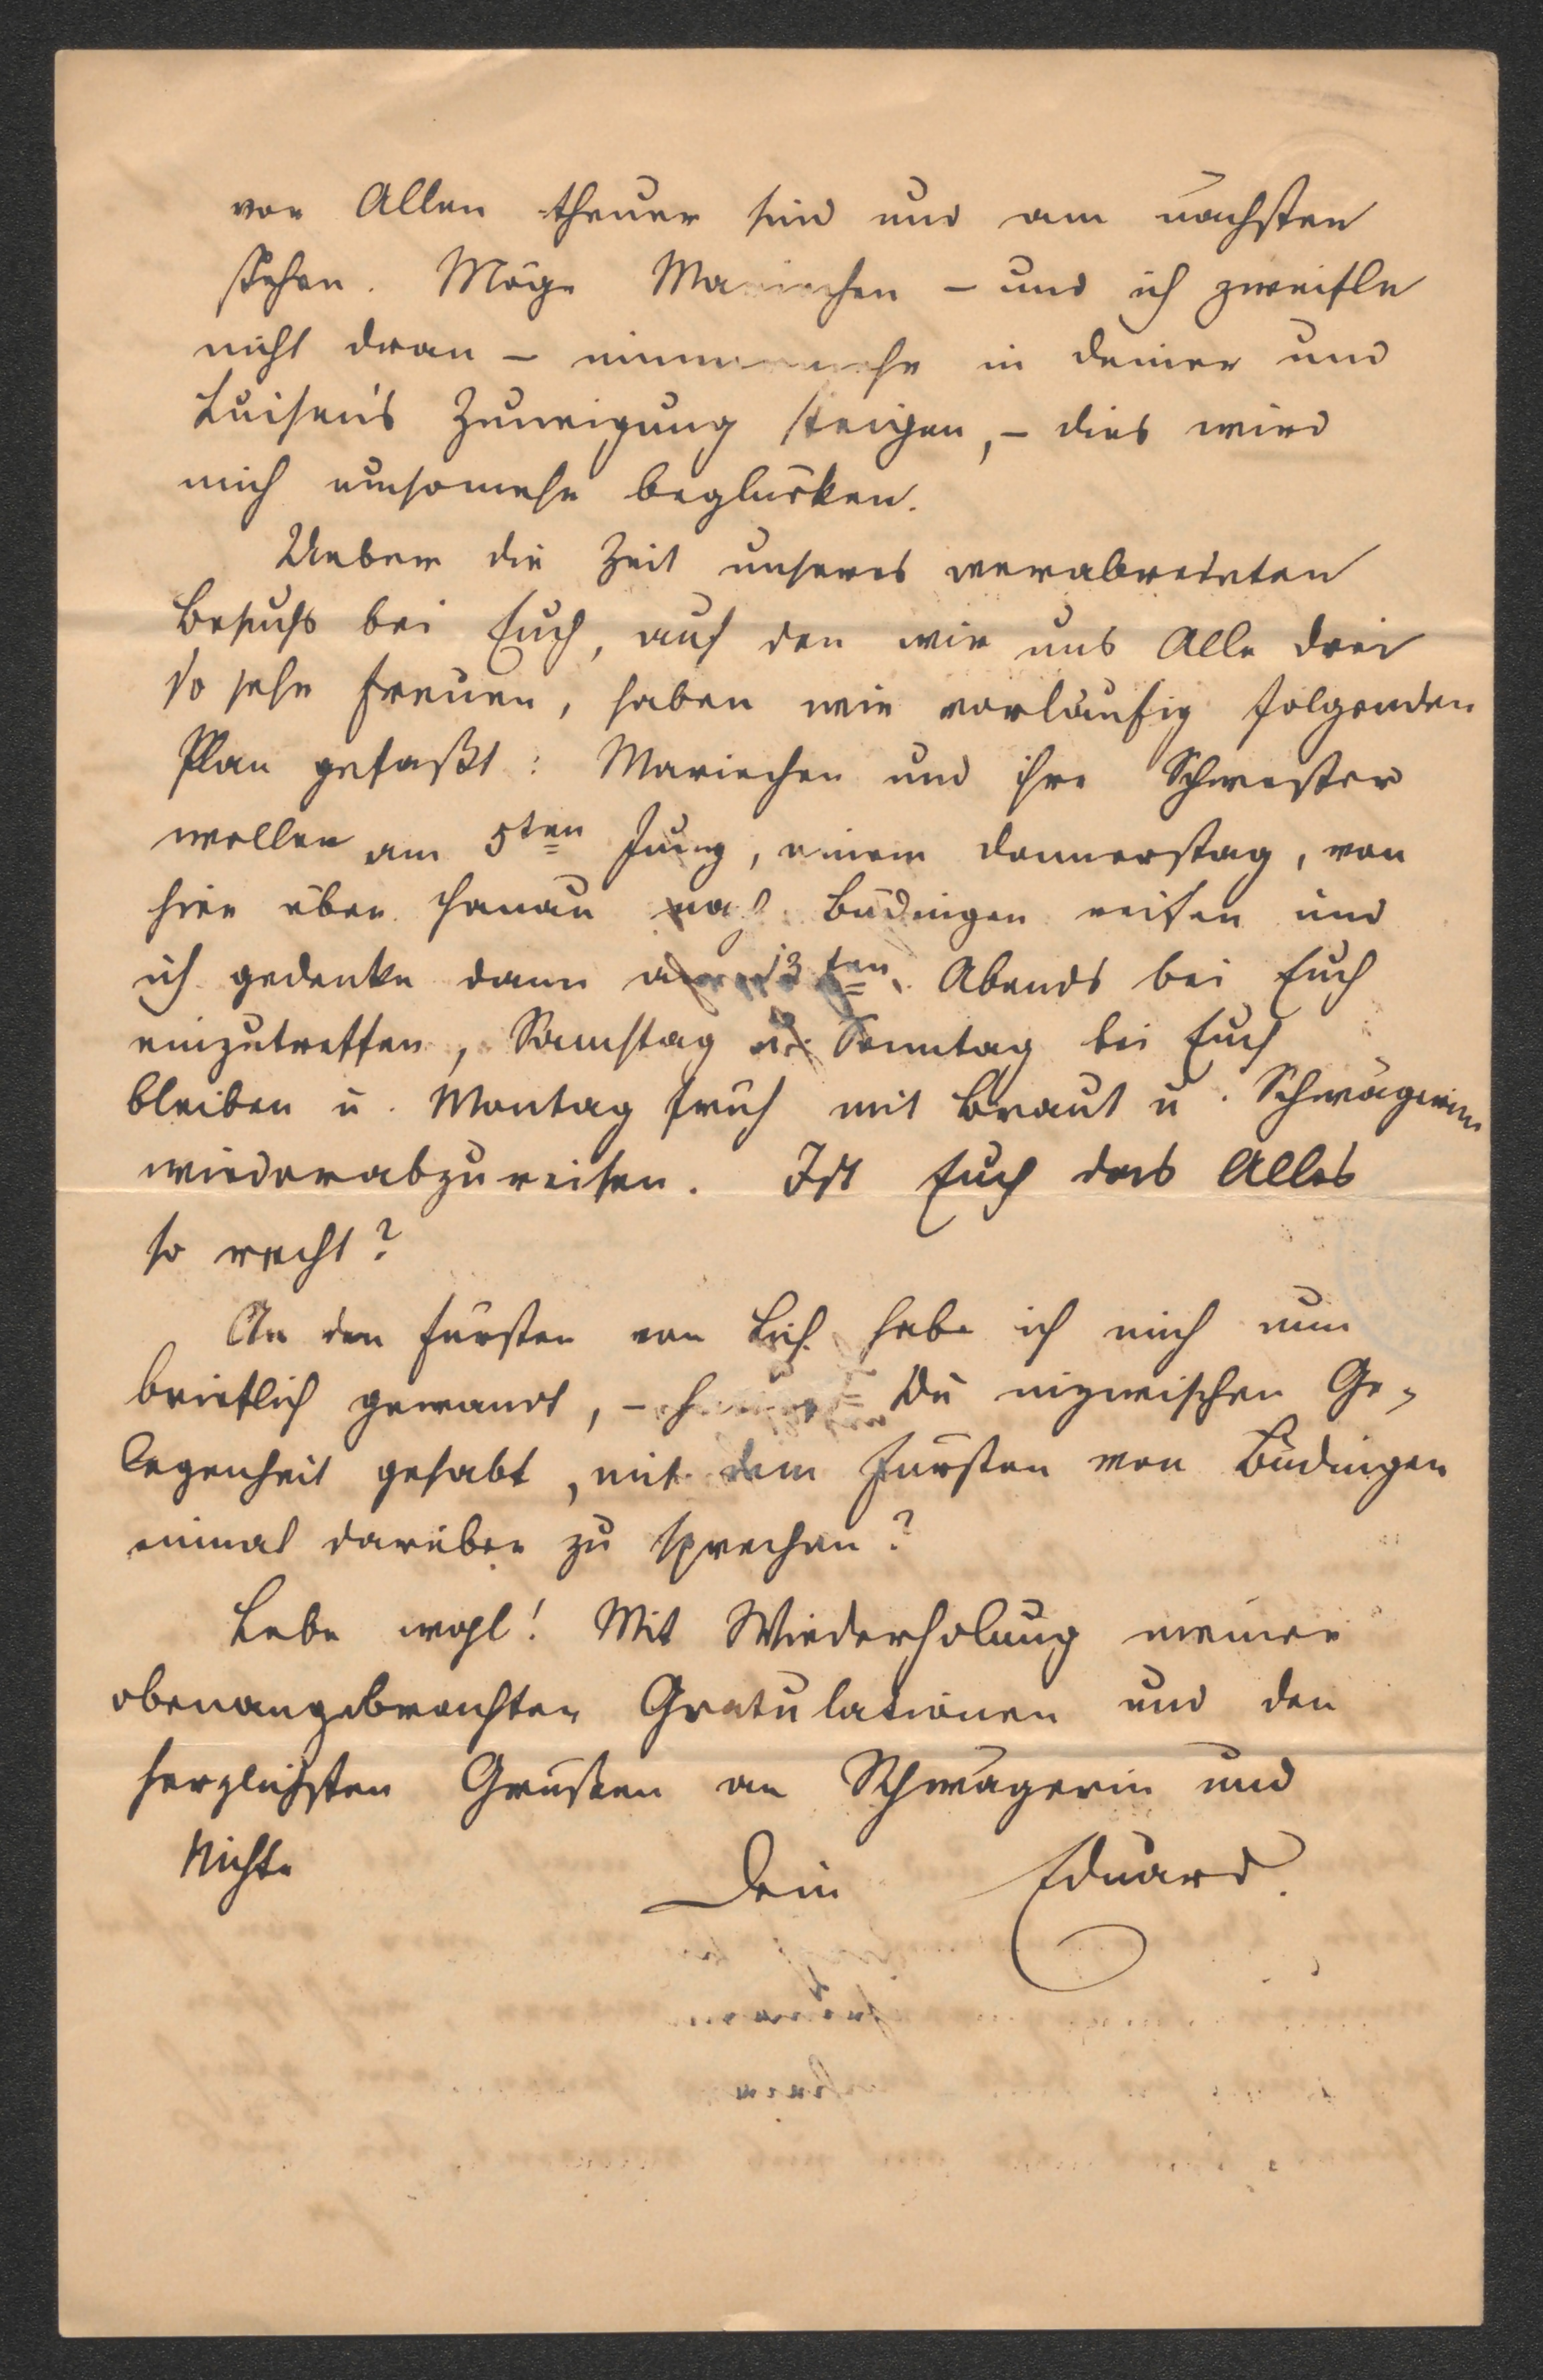 vor Allen theuer sind und am nächsten
stehen. Möge Mariechen – und ich zweifle
nicht dran – immermehr in Deiner und
Luisen's Zuneigung steigen, – dies wird
mich umsomehr beglücken.
Ueber die Zeit unseres verabredeten
Besuchs bei Euch, auf den wir uns Alle drei
so sehr freuen, haben wir vorläufig folgenden
Plan gefaßt: Mariechen und ihre Schwester
wollen am 5ten Juny, einem Donnerstag, von
hier über Hanau nach Büdingen reisen und
ich gedenke dann am 13ten Abends bei Euch
einzutreffen, Samstag u. Sonntag bei Euch
bleiben u. Montag früh mit Braut u. Schwägerin
wiederabzureisen. Ist Euch das Alles
so recht?
An den Fürsten von Lich habe ich mich nun
brieflich gewandt, – Du inzwischen Ge-
legenheit gehabt, mit dem Fürsten von Büdingen
einmal darüber zu sprechen?
Lebe wohl! Mit Wiederholung meiner
obenangebrachten Gratulationen und den
herzlichsten Grüßen an Schwägerin und
Nichte
Dein Eduard.